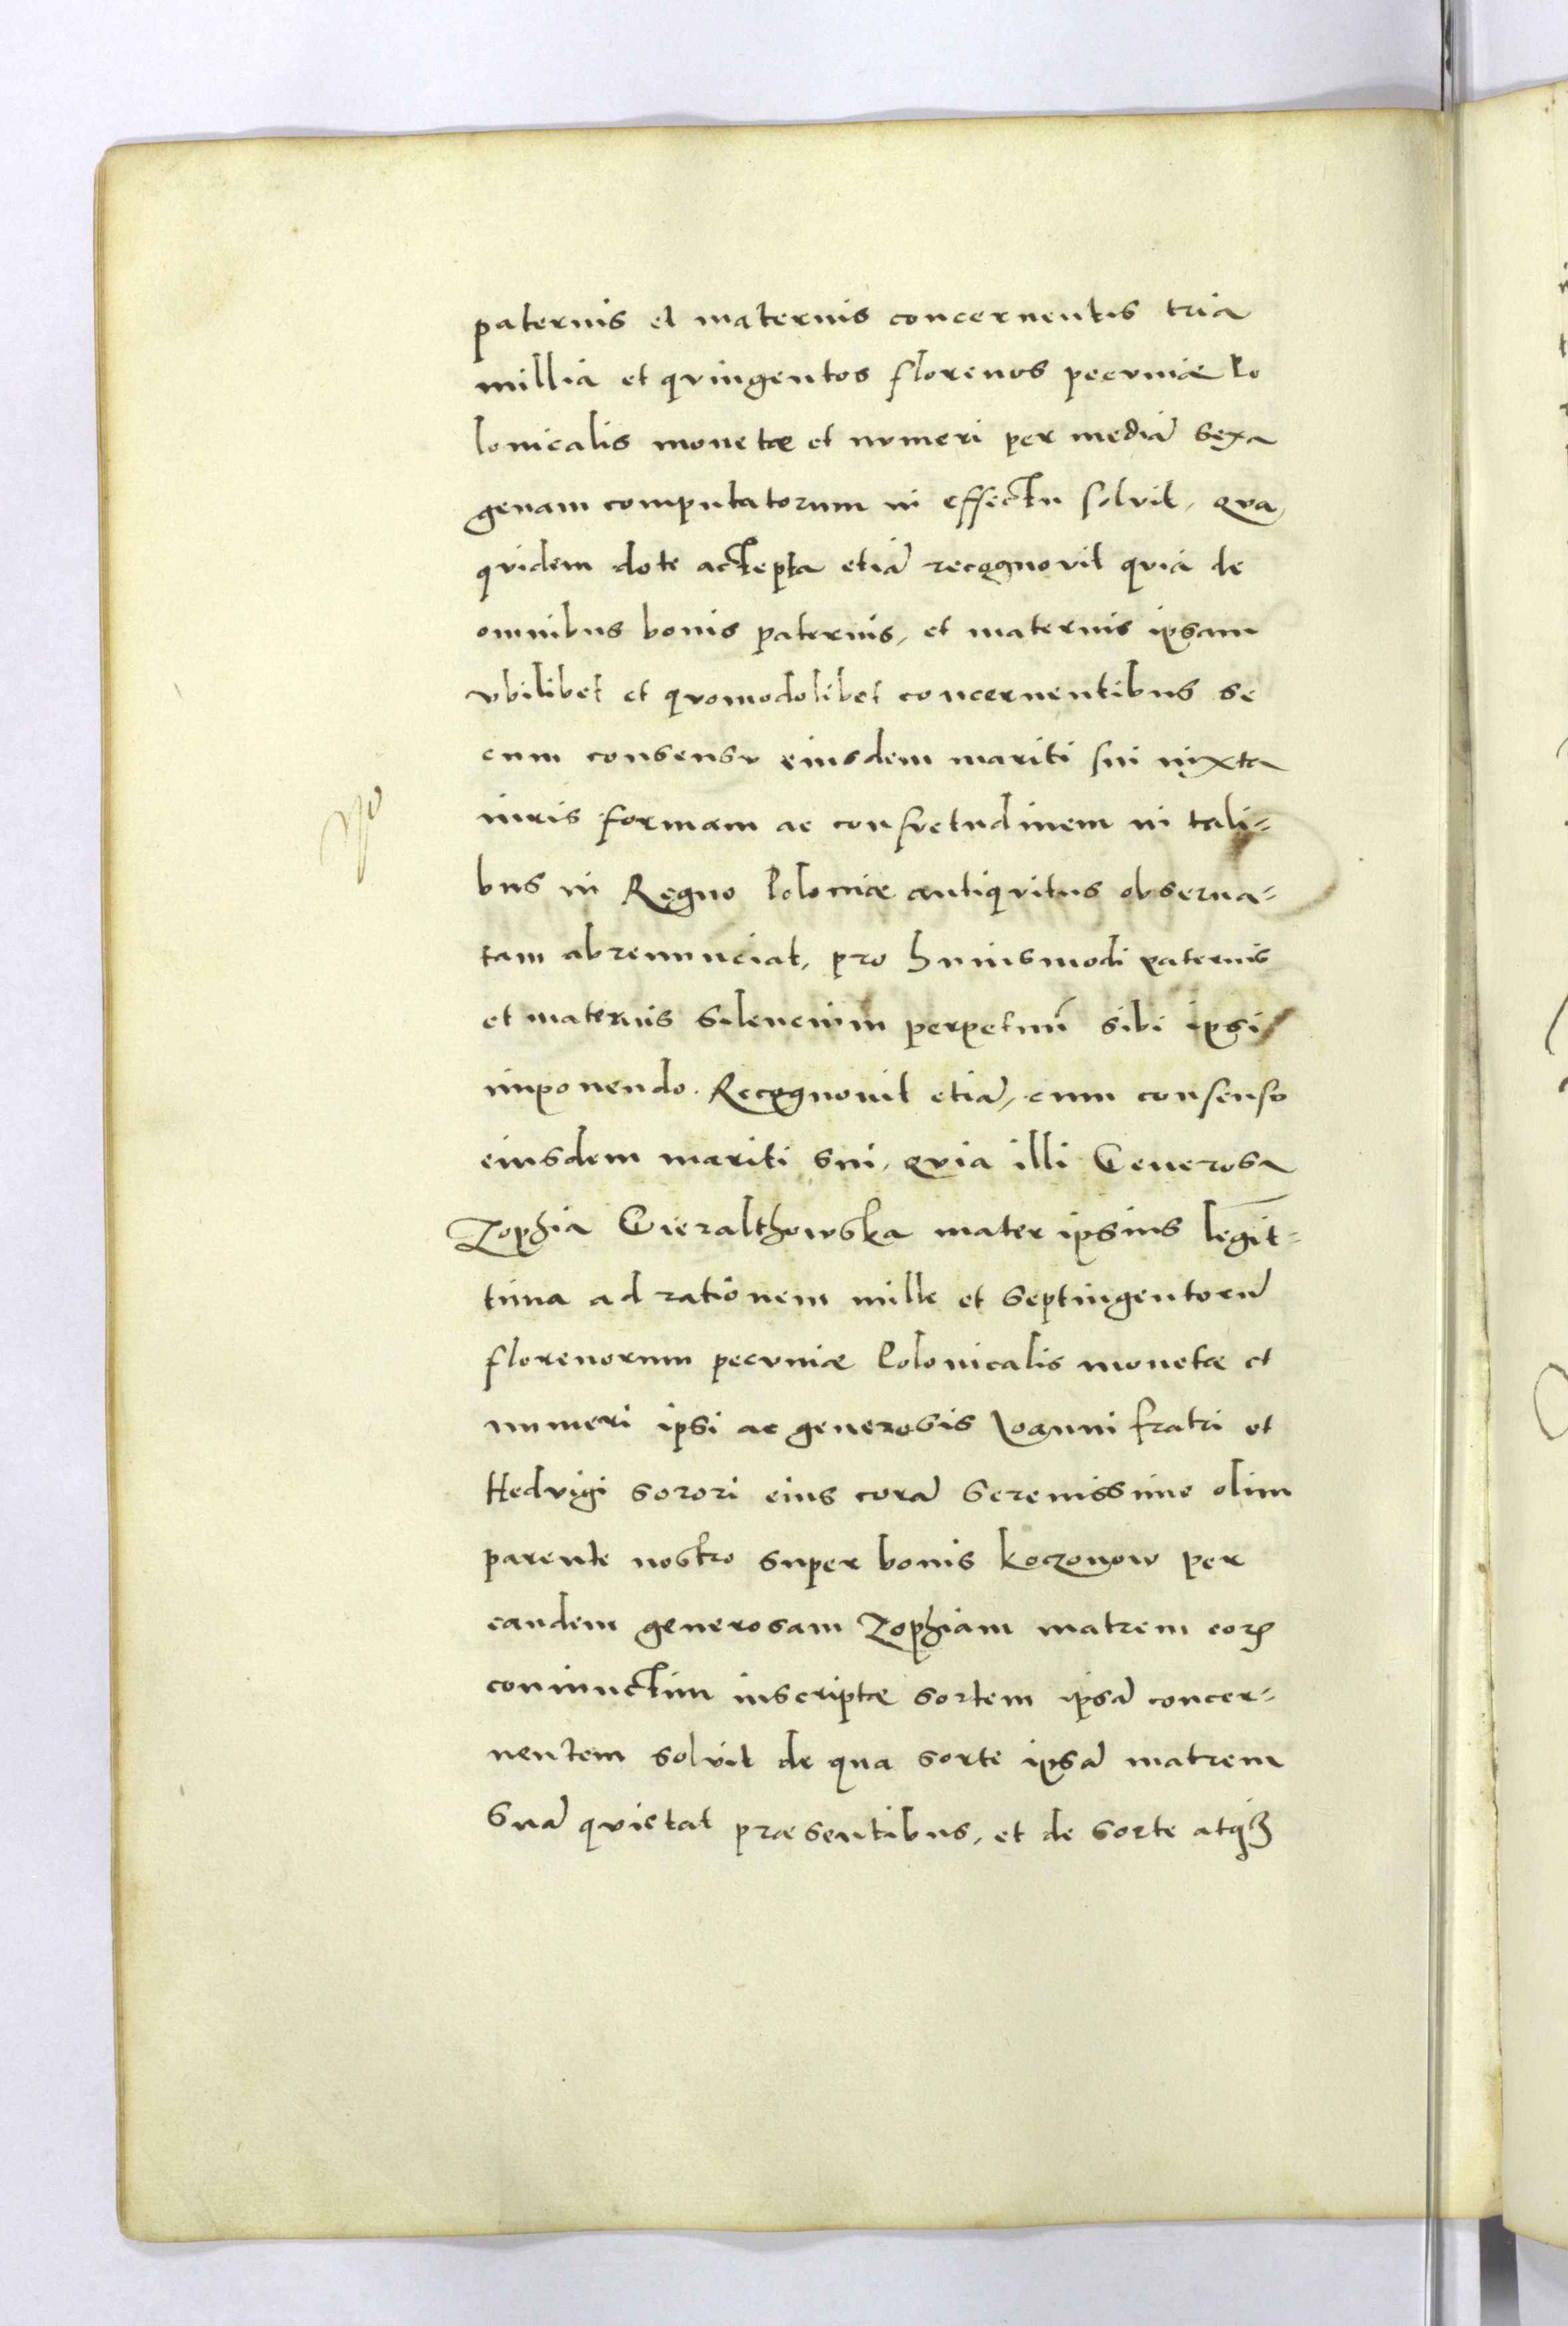 paternis et maternis concernentis tria
millia et qvingentos florenos pecvniæ Po
lonicalis monetæ et nvmeri per mediã sexa
genam computatorum in effectu solvit, qva
qvidem dote accepta etiã recognovit qvia de
omnibus bonis paternis, et maternis ipsam
vbilibet et qvomodolibet concernentibus se
cum consensv eiusdem mariti sui iuxta
iuris formam ac consvetudinem in tali=
bus in Regno Poloniæ antiqvitus observa=
tam abrenunciat, pro huiusmodi paternis
et maternis silencium perpetuũ sibi ipsi
imponendo. Recognovit etiã, cum consenso
eiusdem mariti sui, qvia illi Generosa
Zophia Gieralthowska mater ipsius legit=
tima ad rationem mille et septingentorũ
florenorum pecvniæ Polonicalis monetæ et
numeri ipsi ac generosis Ioanni fratri et
Hedvigi sorori eius corã serenissimo olim
parente nostro super bonis Koczonow per
eandem generosam Zophiam matrem eorꝝ
coniunctim inscriptæ sortem ipsã concer=
nentem solvit de qua sorte ipsã matrem
suã qvietat præsentibus, et de sorte atqꝫ